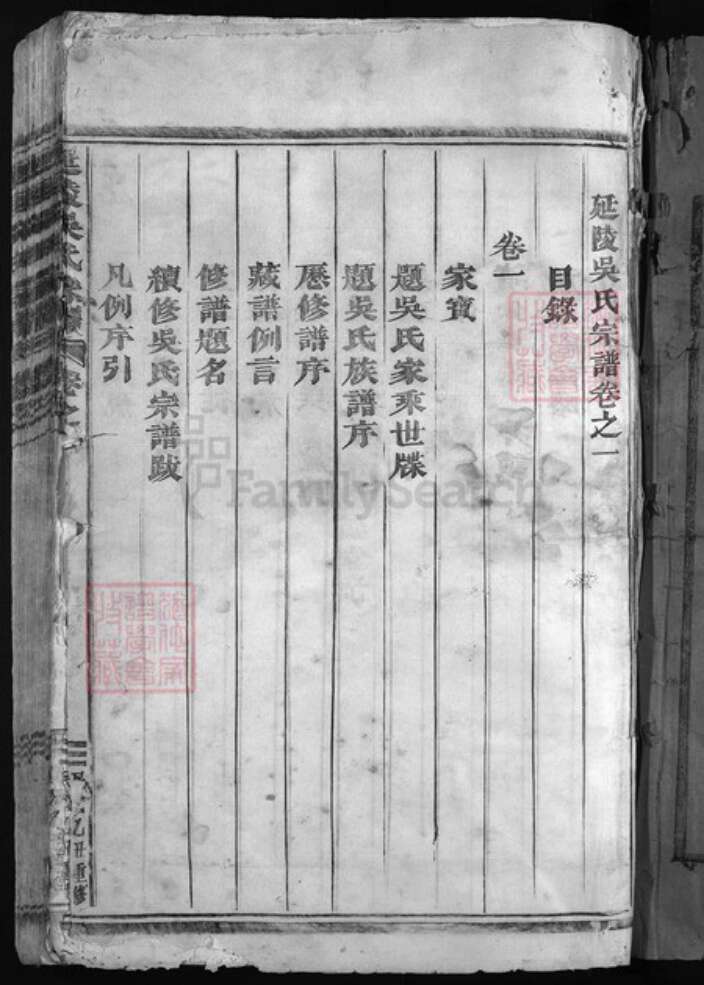 延陵吳氏宗譜卷之一
目錄
卷一
家寶
題吳氏家乘世牒
題吳氏族譜序
歷修譜序
藏譜例言
修譜題名
續修吳氏宗譜跋
凡例序引
延陵吳氏宗譜
乙丑重修
FamilySearch